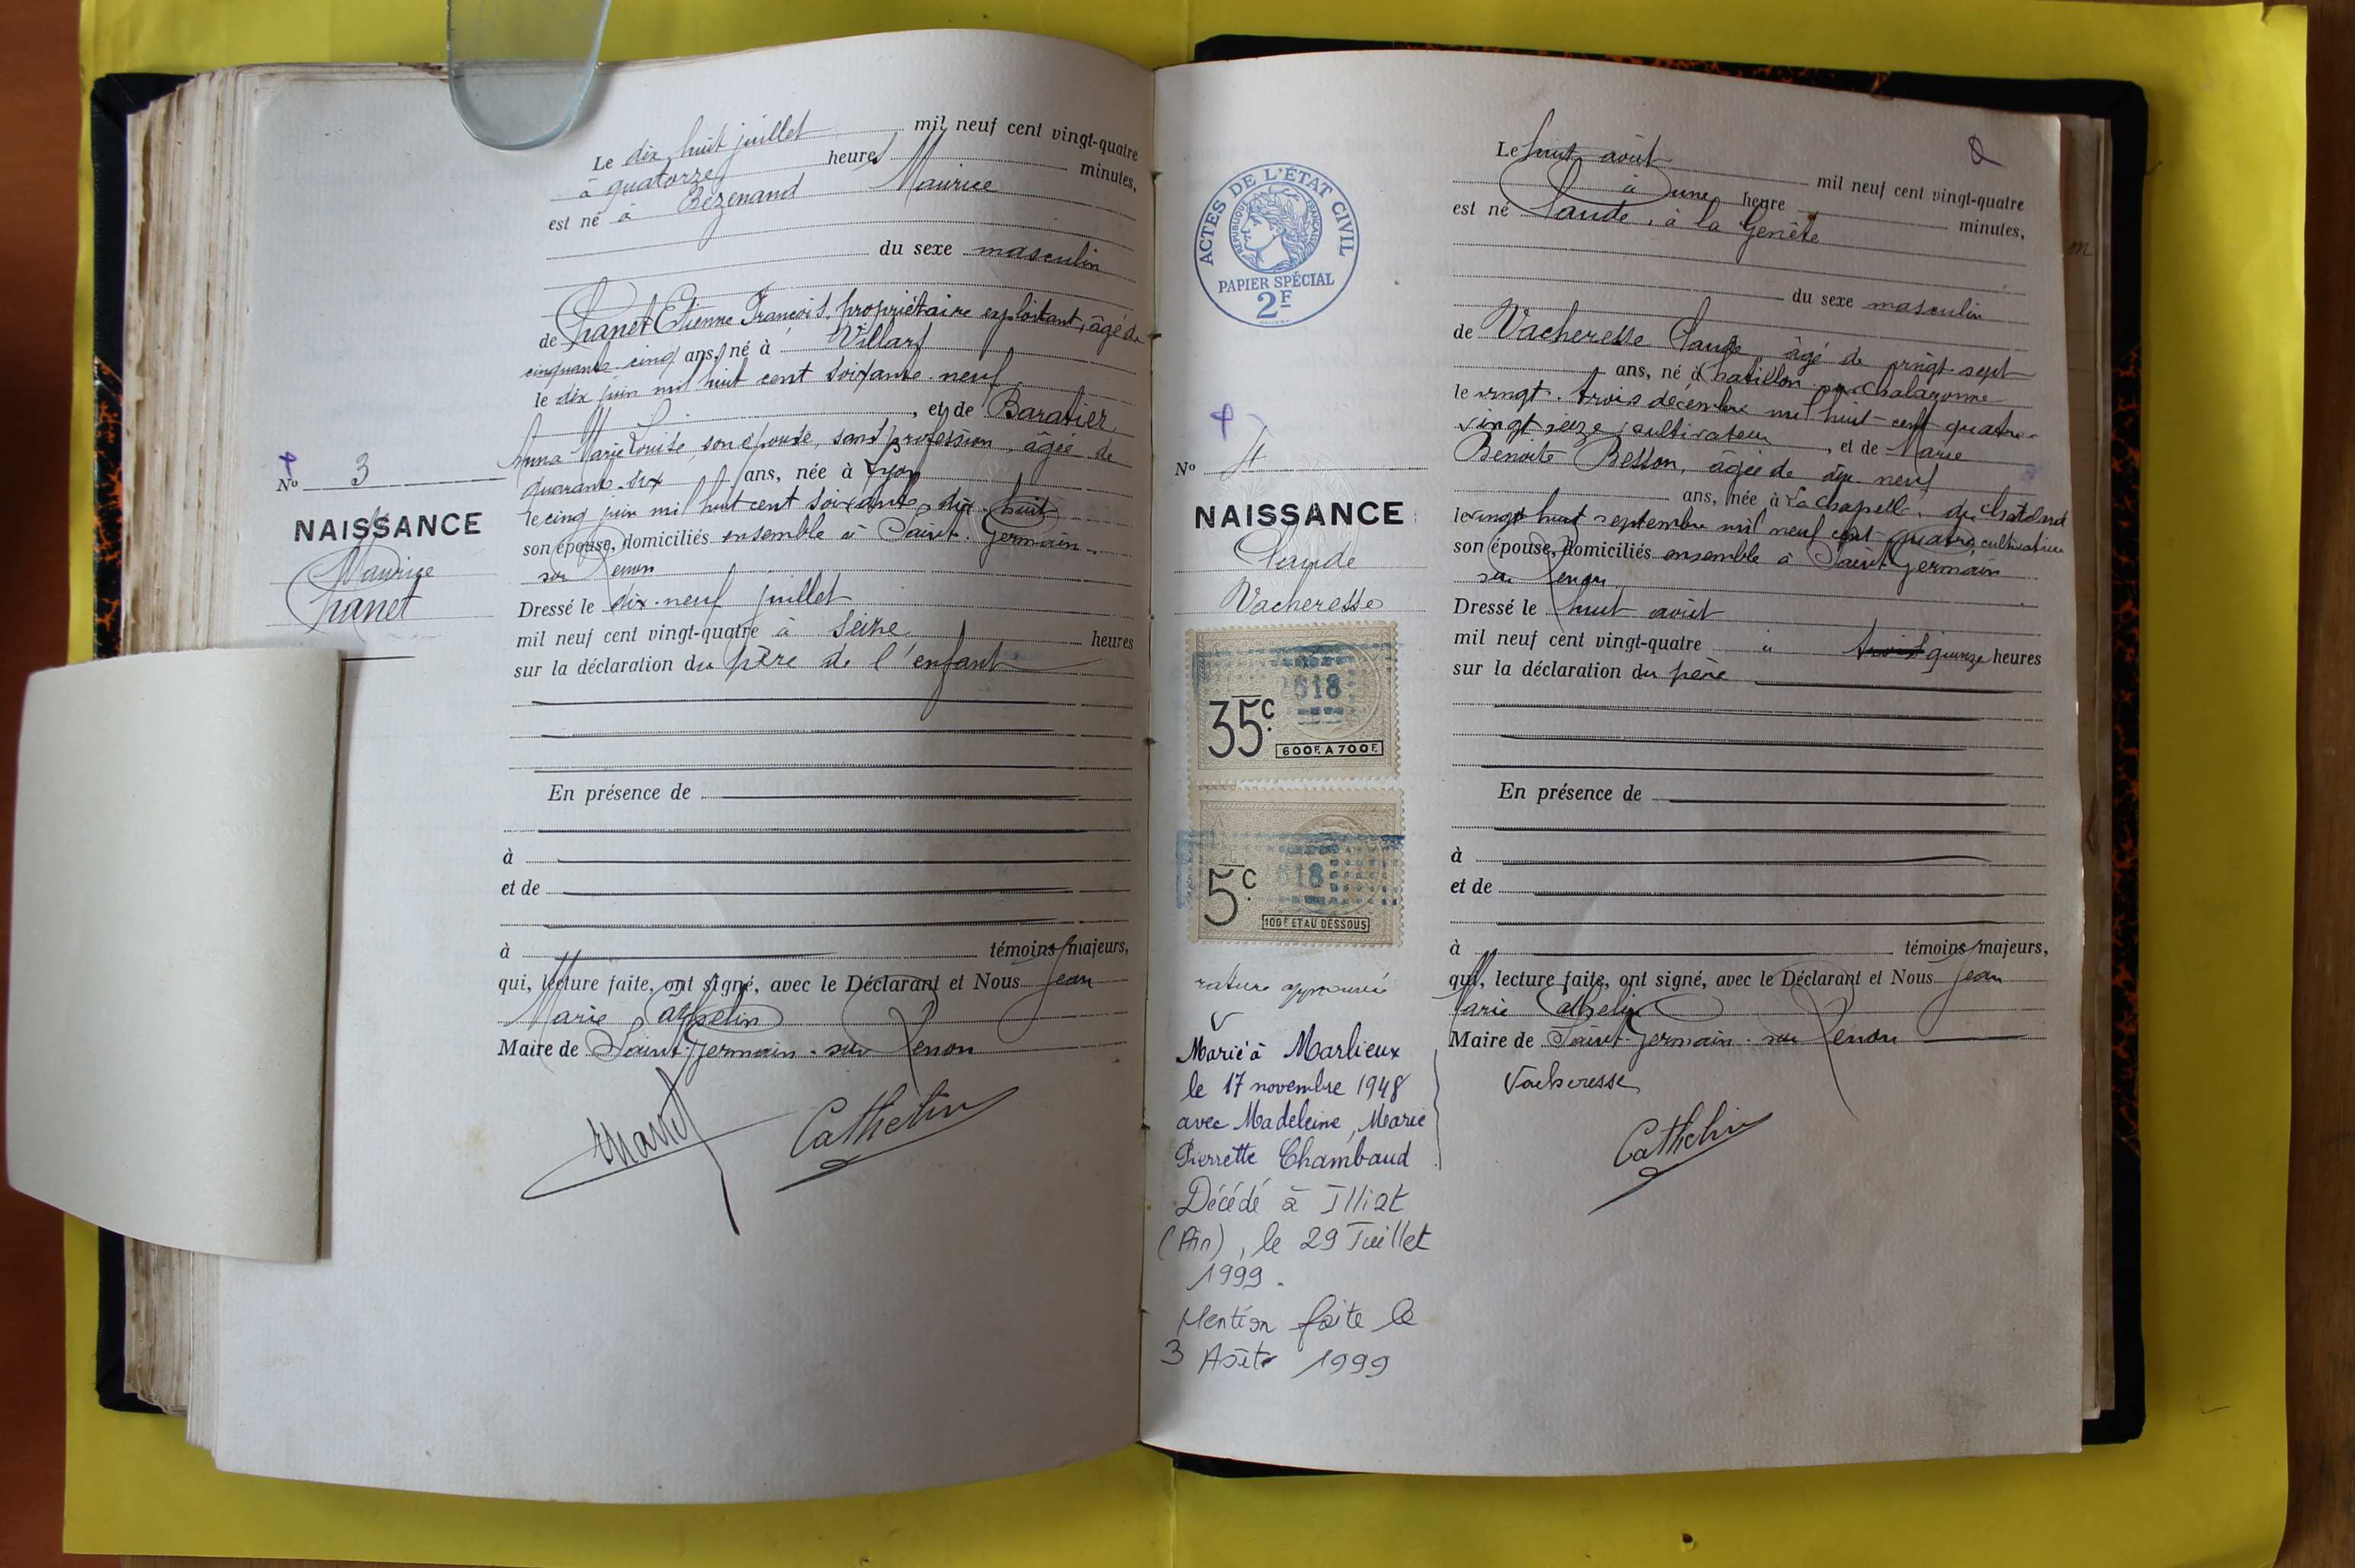 Le dix huit juillet mil neuf cent vingt-quatre
à quatorze heures minutes,
est né à Bézenand Maurice
du sexe masculin
de Chanet Etienne François, propriétaire exploitant, âgé de
cinquante cinq ans, né à Villars
le dix juin mil huit cent soixante-neuf
, et de Baratier
Anna Marie Louise, son épouse, sans profession, âgée de
quarante-six ans, née à Lyon
le cinq juin mil huit cent soixante-dix-huit
son épouse, domiciliés ensemble à Saint-Germain-
sur Renon
Dressé le dix-neuf juillet
mil neuf cent vingt-quatre à seize heures
sur la déclaration du père de l'enfant
En présence de
à
et de
à témoins majeurs,
qui, lecture faite, ont signé, avec le Déclarant et Nous Jean
Marie Cathelin
Maire de Saint-Germain-sur Renon
Chanet Cathelin
N° 3
NAISSANCE
Maurice
Chanet
ACTES DE L'ÉTAT CIVIL
RÉPUBLIQUE FRANÇAISE
PAPIER SPÉCIAL
2F
N° 4
NAISSANCE
Claude
Vacheresse
618
35c.
600F. A 700F.
618
5c.
100F ET AU DESSOUS
rature approuvée
Marié à Marlieux
le 17 novembre 1948
avec Madeleine, Marie
Pierrette Chambaud
Décédé à Illiat
(Ain), le 29 Juillet
1999.
Mention faite le
3 Août 1999
Le huit août mil neuf cent vingt-quatre
à une heure minutes,
est né Claude, à la Genète
du sexe masculin
de Vacheresse Claude, âgé de vingt-sept
ans, né à Chatillon sur Chalaronne
le vingt-trois décembre mil huit-cent quatre-
vingt seize, cultivateur, et de Marie
Benoite Besson, âgée de dix-neuf
ans, née à La Chapelle du Chatelard
le vingt huit septembre mil neuf cent quatre, cultivatrice
son épouse, domiciliés ensemble à Saint Germain
sur Renon
Dressé le huit août
mil neuf cent vingt-quatre à trois quinze heures
sur la déclaration du père
En présence de
à
et de
à témoins majeurs,
qui, lecture faite, ont signé, avec le Déclarant et Nous Jean
Marie Cathelin
Maire de Saint-Germain-sur Renon
Vacheresse
Cathelin